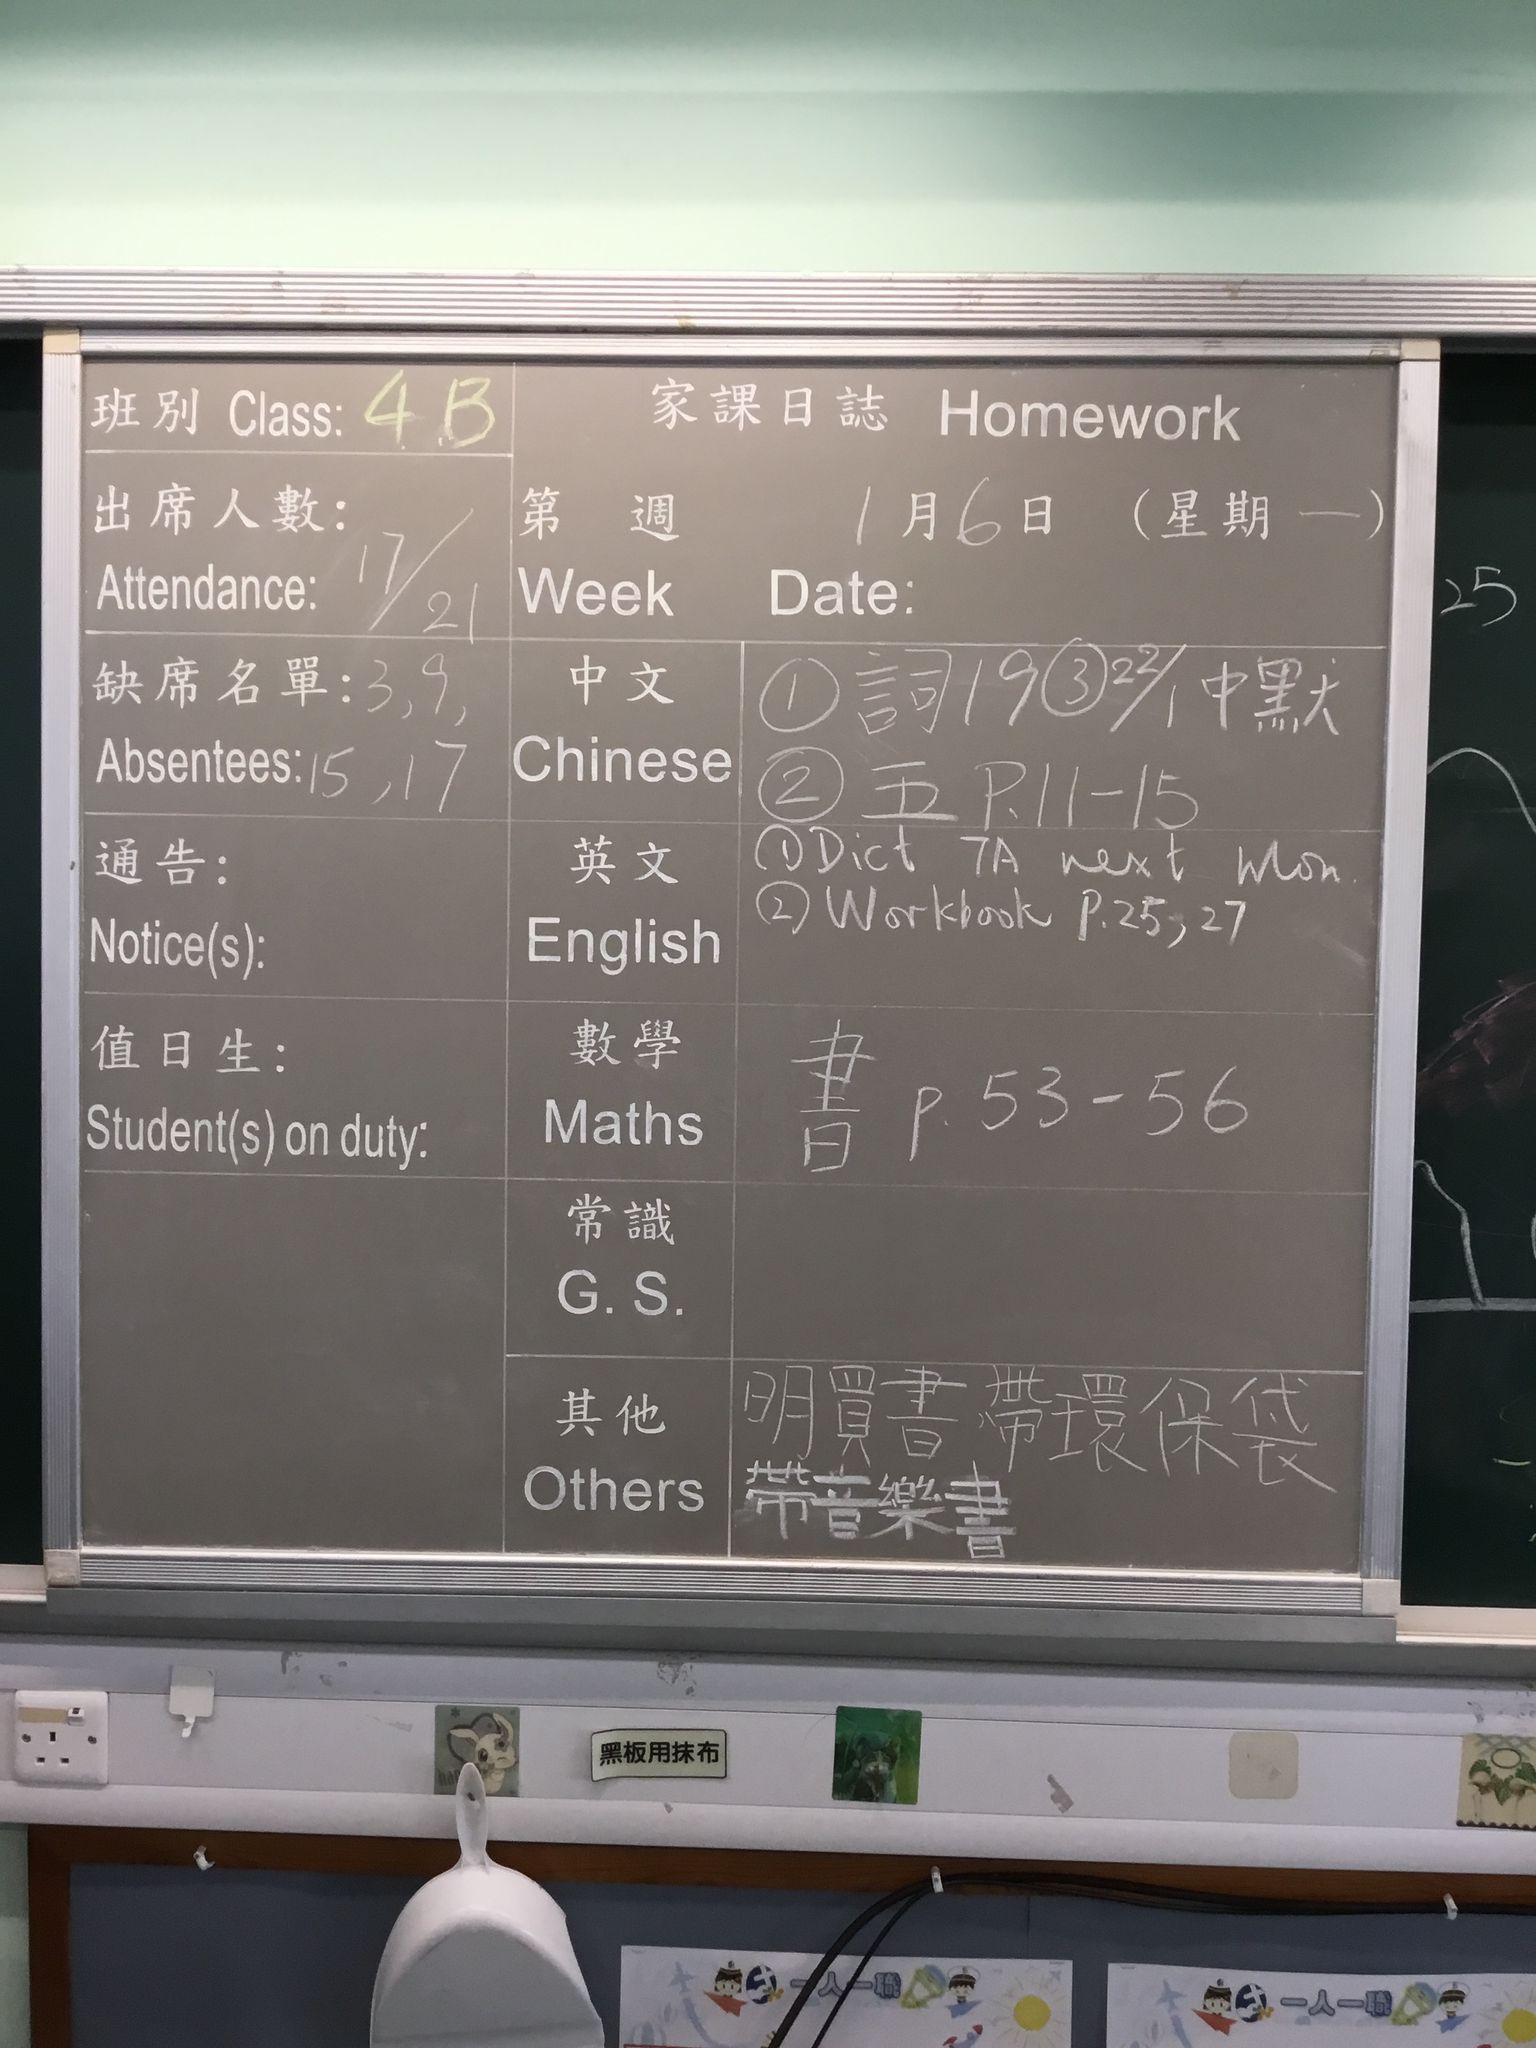 班別 Class: 4B
出席人數:
Attendance: 17/21
缺席名單: 3, 9,
Absentees: 15, 17
通告:
Notice(s):
值日生:
Student(s) on duty:
家課日誌 Homework
第 週 1月6日 (星期一)
Week Date:
中文
Chinese
① 詞19 ③ 22/1 中默
② 五 P.11-15
英文
English
① Dict 7A next Mon.
② Workbook P.25, 27
數學
Maths
書 p. 53-56
常識
G. S.
其他
Others
明買書 帶環保袋
帶音樂書
25
黑板用抹布
一人一職
一人一職